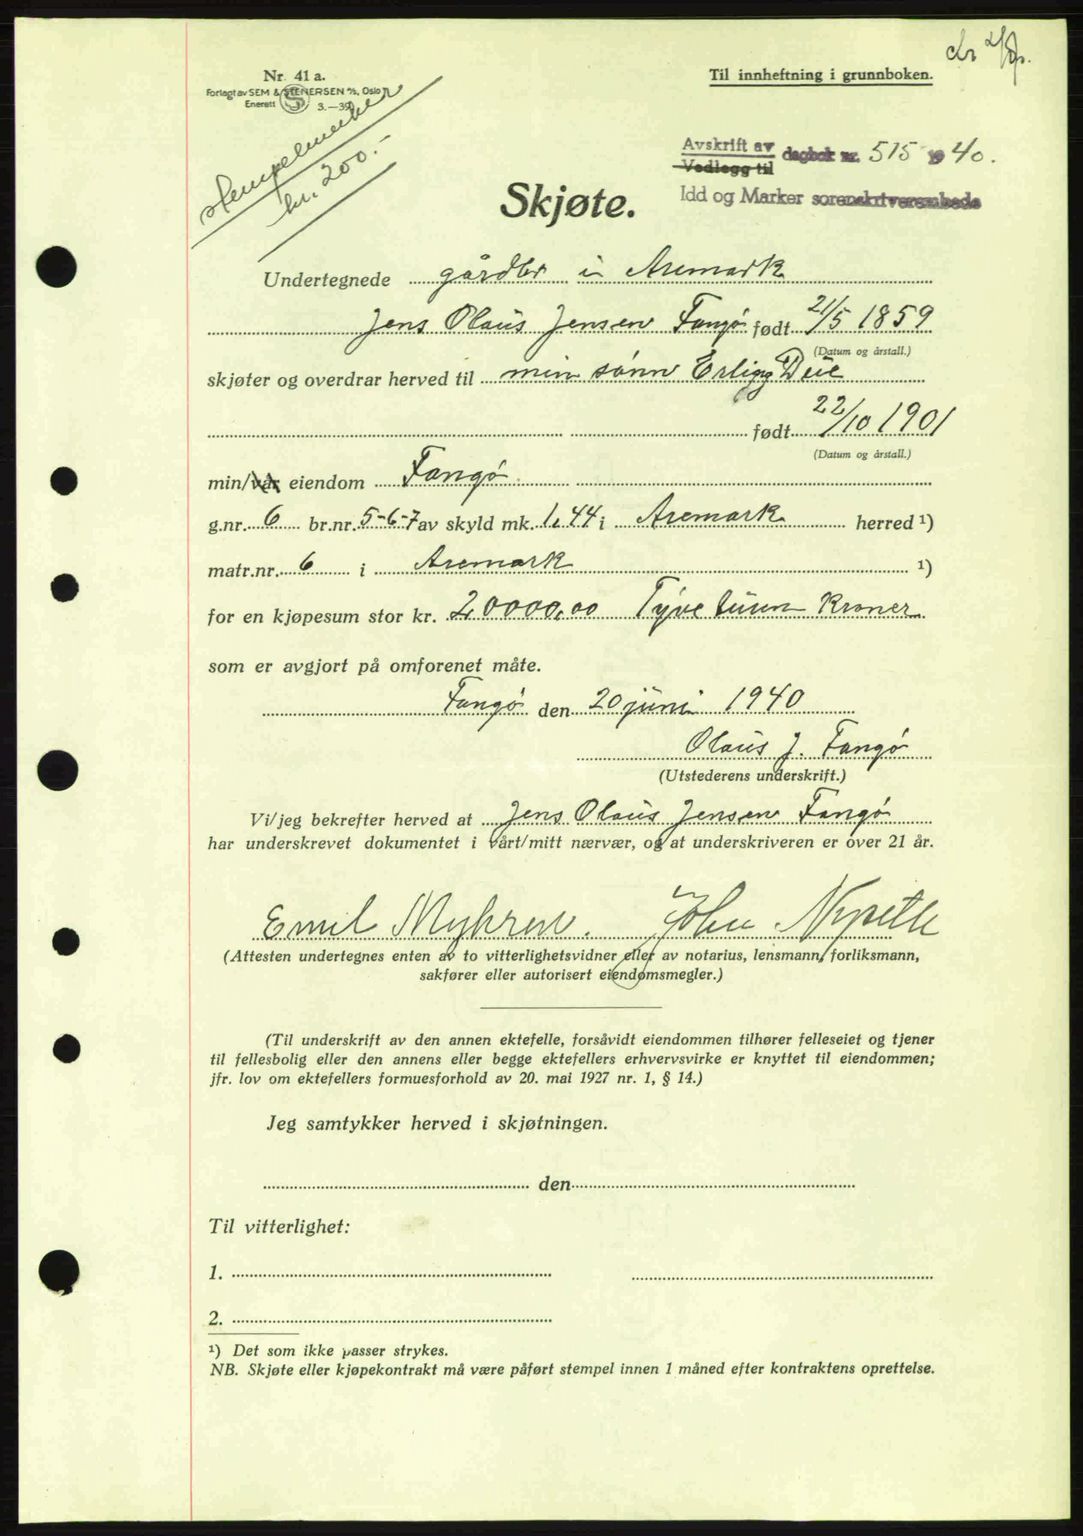 Nr. 41 a.
Forlagt av SEM & STENERSEN A/S, Oslo
Enerett S 3.—39
Til innheftning i grunnboken.
Stempelmerker
kr. 200.-
Avskrift av
Vedlegg til
dagbok nr. 515 1940.
Idd og Marker sorenskriverembede
Skjøte.
Undertegnede gårdbr i Aremark
Jens Olaus Jensen Fangø født 21/5 1859
(Datum og årstall.)
skjøter og overdrar herved til min sønn Erling
født 22/10 1901
(Datum og årstall.)
min/vår eiendom Fangø
g.nr. 6 br.nr. 5-6-7 av skyld mk. 1,44 i Aremark herred ¹)
matr.nr. 6 i Aremark ¹)
for en kjøpesum stor kr. 20000,00 Tyve tusen Kroner
som er avgjort på omforenet måte.
Fangø den 20 juni 1940
Olaus J. Fangø
(Utstederens underskrift.)
Vi/jeg bekrefter herved at Jens Olaus Jensen Fangø
har underskrevet dokumentet i vårt/mitt nærvær, og at underskriveren er over 21 år.
Emil Myhren. John
(Attesten undertegnes enten av to vitterlighetsvidner eller av notarius, lensmann, forliksmann,
sakfører eller autorisert eiendomsmegler.)
(Til underskrift av den annen ektefelle, forsåvidt eiendommen tilhører felleseiet og tjener
til fellesbolig eller den annens eller begge ektefellers erhvervsvirke er knyttet til eiendommen;
jfr. lov om ektefellers formuesforhold av 20. mai 1927 nr. 1, § 14.)
Jeg samtykker herved i skjøtningen.
den
Til vitterlighet:
1.
2.
¹) Det som ikke passer strykes.
NB. Skjøte eller kjøpekontrakt må være påført stempel innen 1 måned efter kontraktens oprettelse.